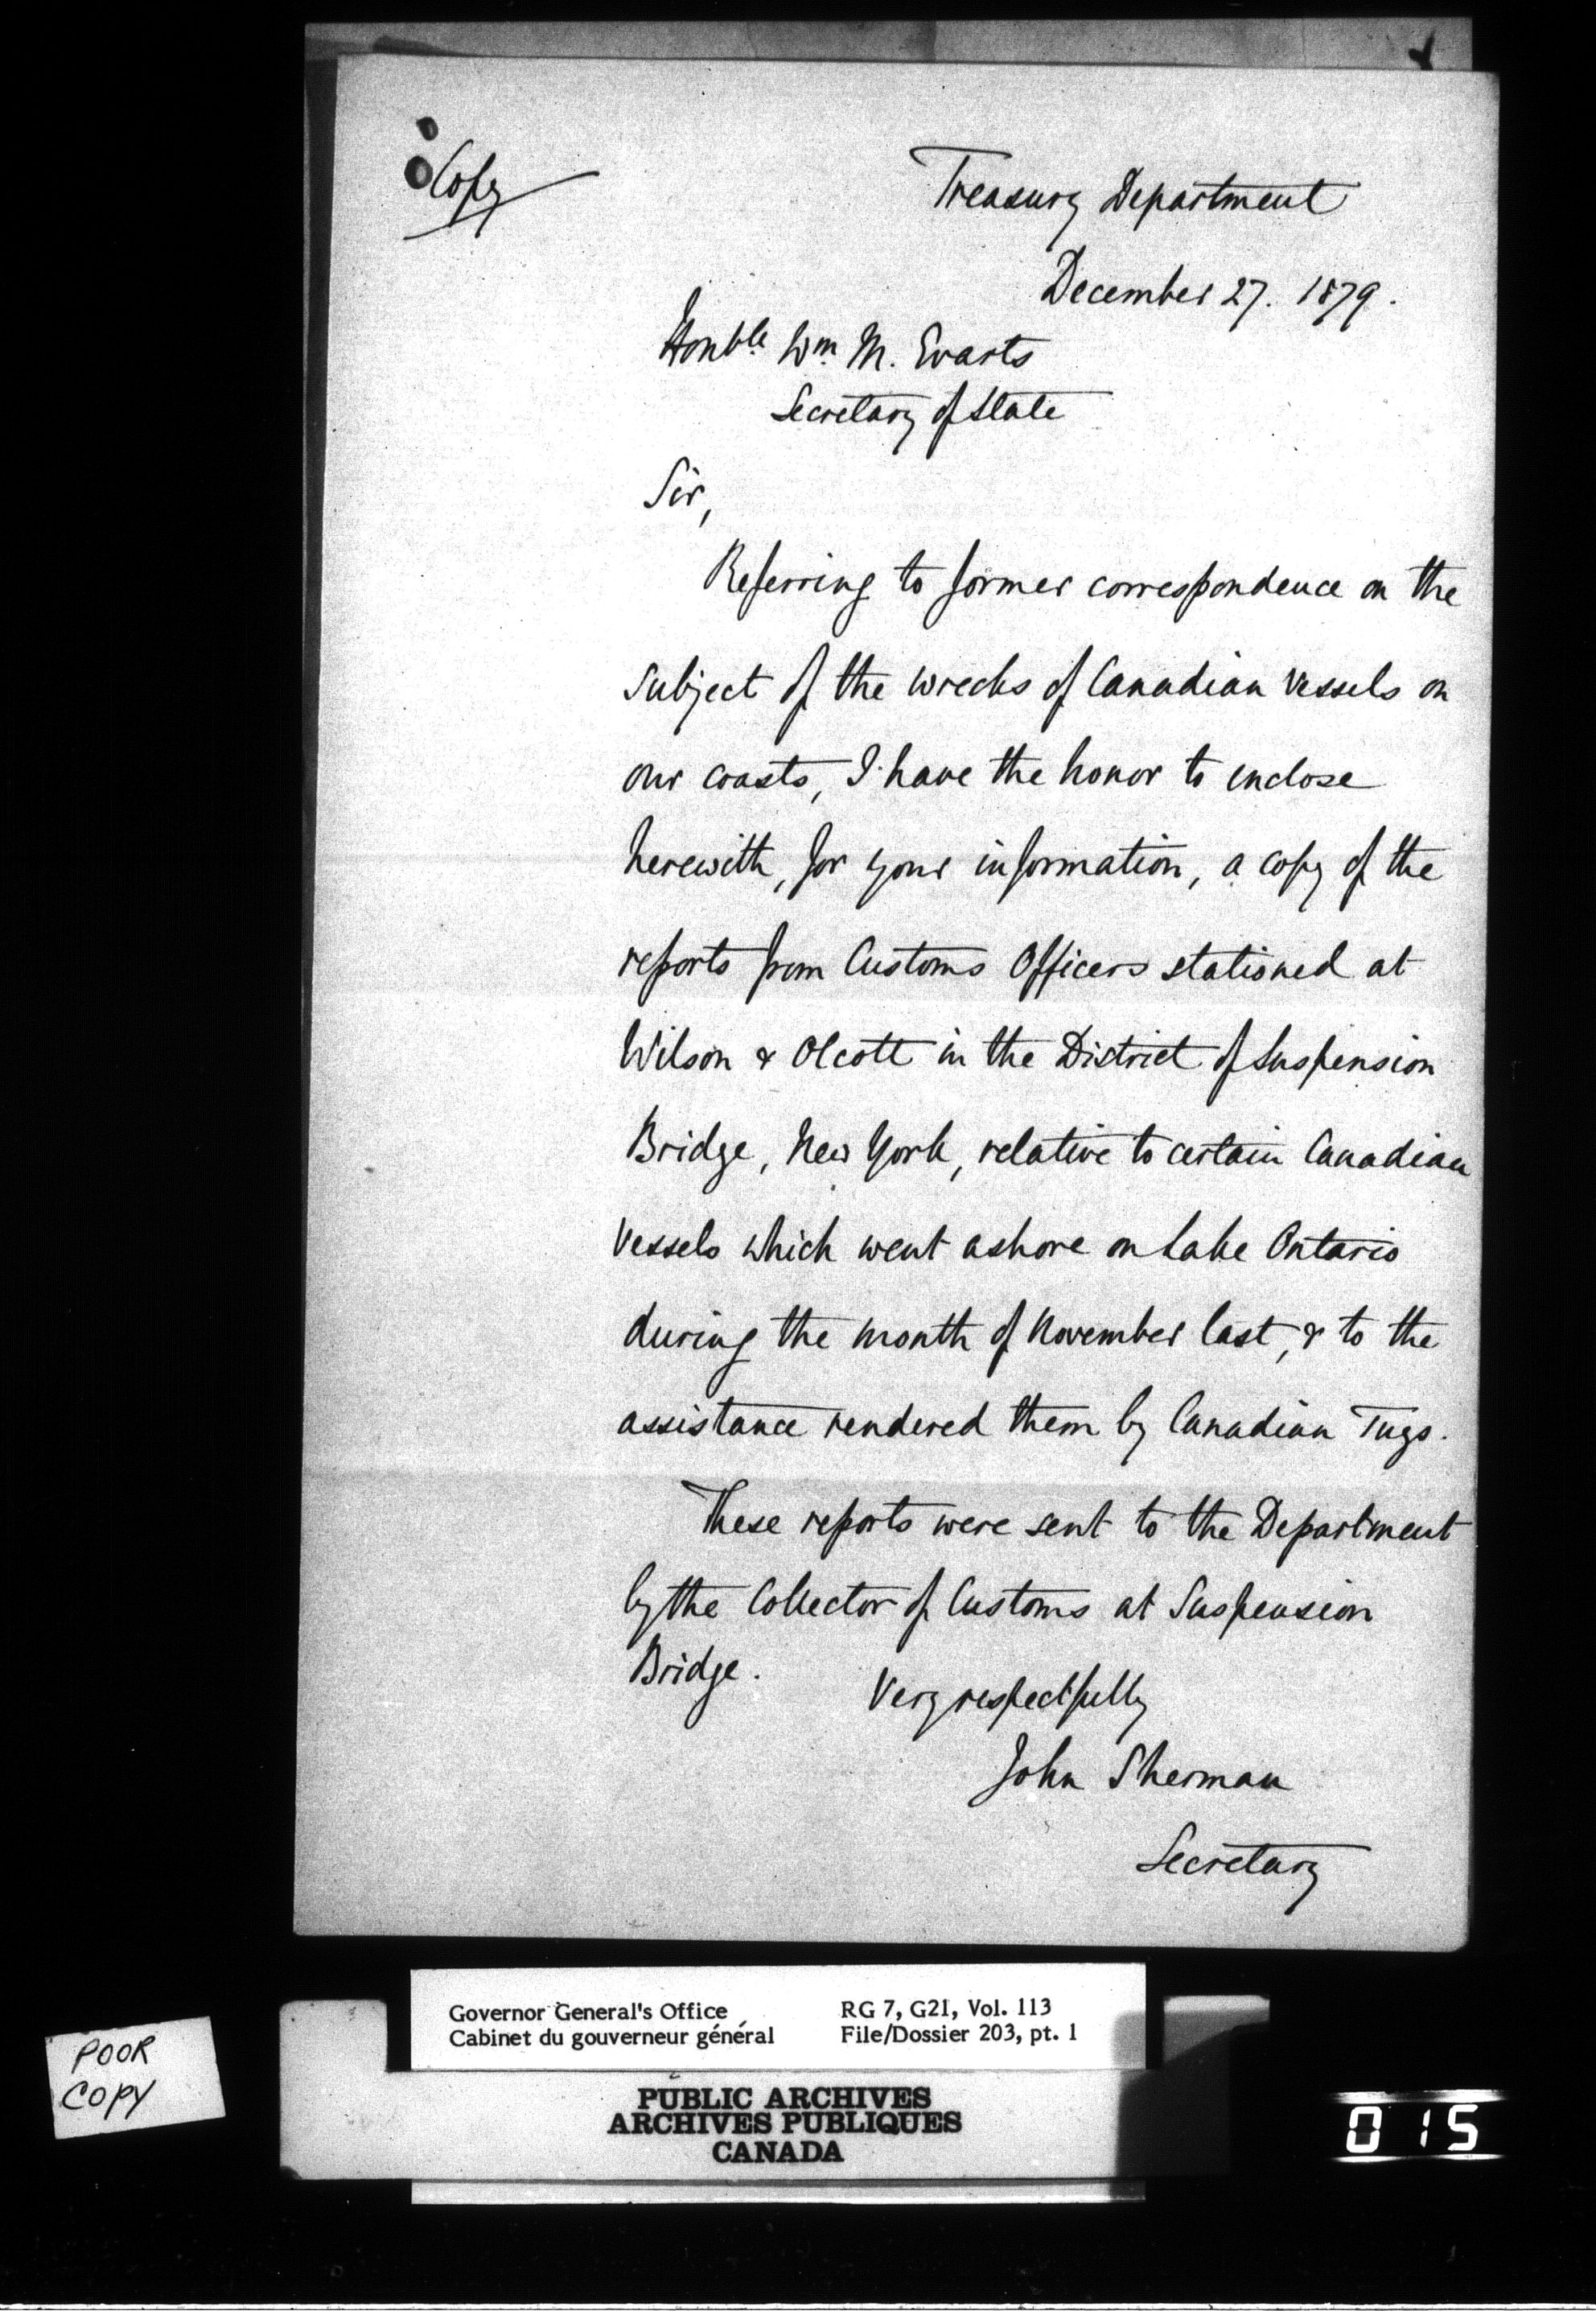 Copy
Treasury Department
December 27. 1879.
Honble Wm M. Evarts
Secretary of State
Sir,
Referring to former correspondence on the
subject of the wrecks of Canadian vessels on
our coasts, I have the honor to enclose
herewith, for your information, a copy of the
reports from Customs Officers stationed at
Wilson & Olcott in the District of Suspension
Bridge, New York, relative to certain Canadian
vessels which went ashore on Lake Ontario
during the month of November last, & to the
assistance rendered them by Canadian Tugs.
These reports were sent to the Department
by the Collector of Customs at Suspension
Bridge.
Very respectfully
John Sherman
Secretary
Governor General's Office
Cabinet du gouverneur général
RG 7, G21, Vol. 113
File/Dossier 203, pt. 1
PUBLIC ARCHIVES
ARCHIVES PUBLIQUES
CANADA
POOR
COPY
015